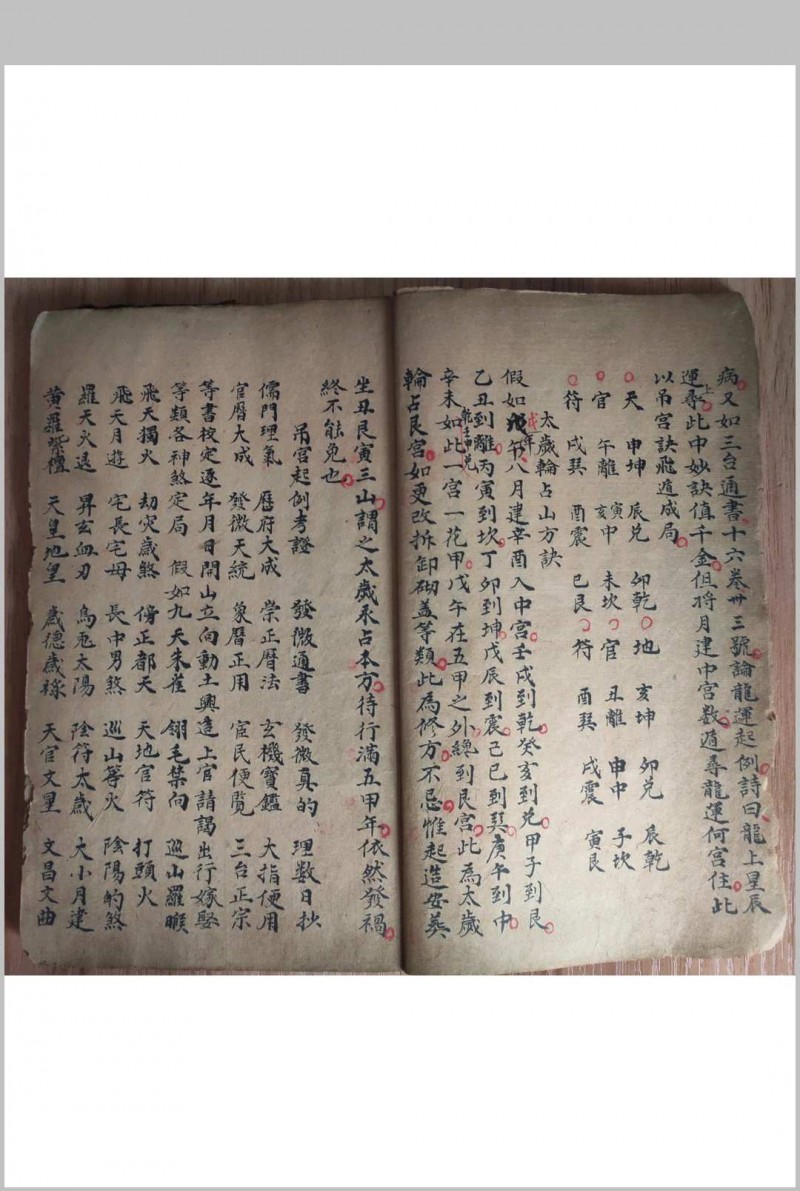 病又如三台通書十六卷卅三號論龍運起例詩曰龍上星辰
運上尋此中妙訣值千金但将月建中宮数遁尋龍運何宮住此
以吊宮訣飛遁成局
天 申坤 辰兑 卯乾 地 亥坤 卯兑 辰乾
官 午離 寅亥中 未坎 官 丑離 申中 子坎
符 戌巽 酉震 巳艮 符 酉巽 戌震 寅艮
太歲輪占山方訣
假如戊午年八月建辛酉入中宮壬戌到乾癸亥到兑甲子到艮
乙丑到離丙寅到坎丁卯到坤戊辰到震己巳到巽庚午到中
辛未如此一宮一花甲戊午在五甲之外總到艮宮此為太歲
輪占艮宮如更改拆卸砌盖等類此為修方不忌惟起造安葬
坐丑艮寅三山謂之太歲承占本方待行滿五甲年依然發禍
終不能免也
吊宮起例考證 發微通書 發微真的 理数日抄
儒門理氣 曆府大成 崇正曆法 玄機寶鑑 大指便用
官曆大成 發微天統 象曆正用 宦民便覧 三台正宗
等書按定逐年月日開山立向動土興造上官請謁出行嫁娶
等類各神煞定局 假如九天朱雀 翎毛禁向 巡山羅睺
飛天獨火 劫灾歲煞 傍正都天 天地官符 打頭火
飛天月遊 宅長宅母 長中男煞 巡山等火 陰陽的煞
羅天火退 昇玄血刃 烏兎太陽 陰符太歲 大小月建
黄羅紫檀 天皇地皇 歲德歲祿 天官文星 文昌文曲